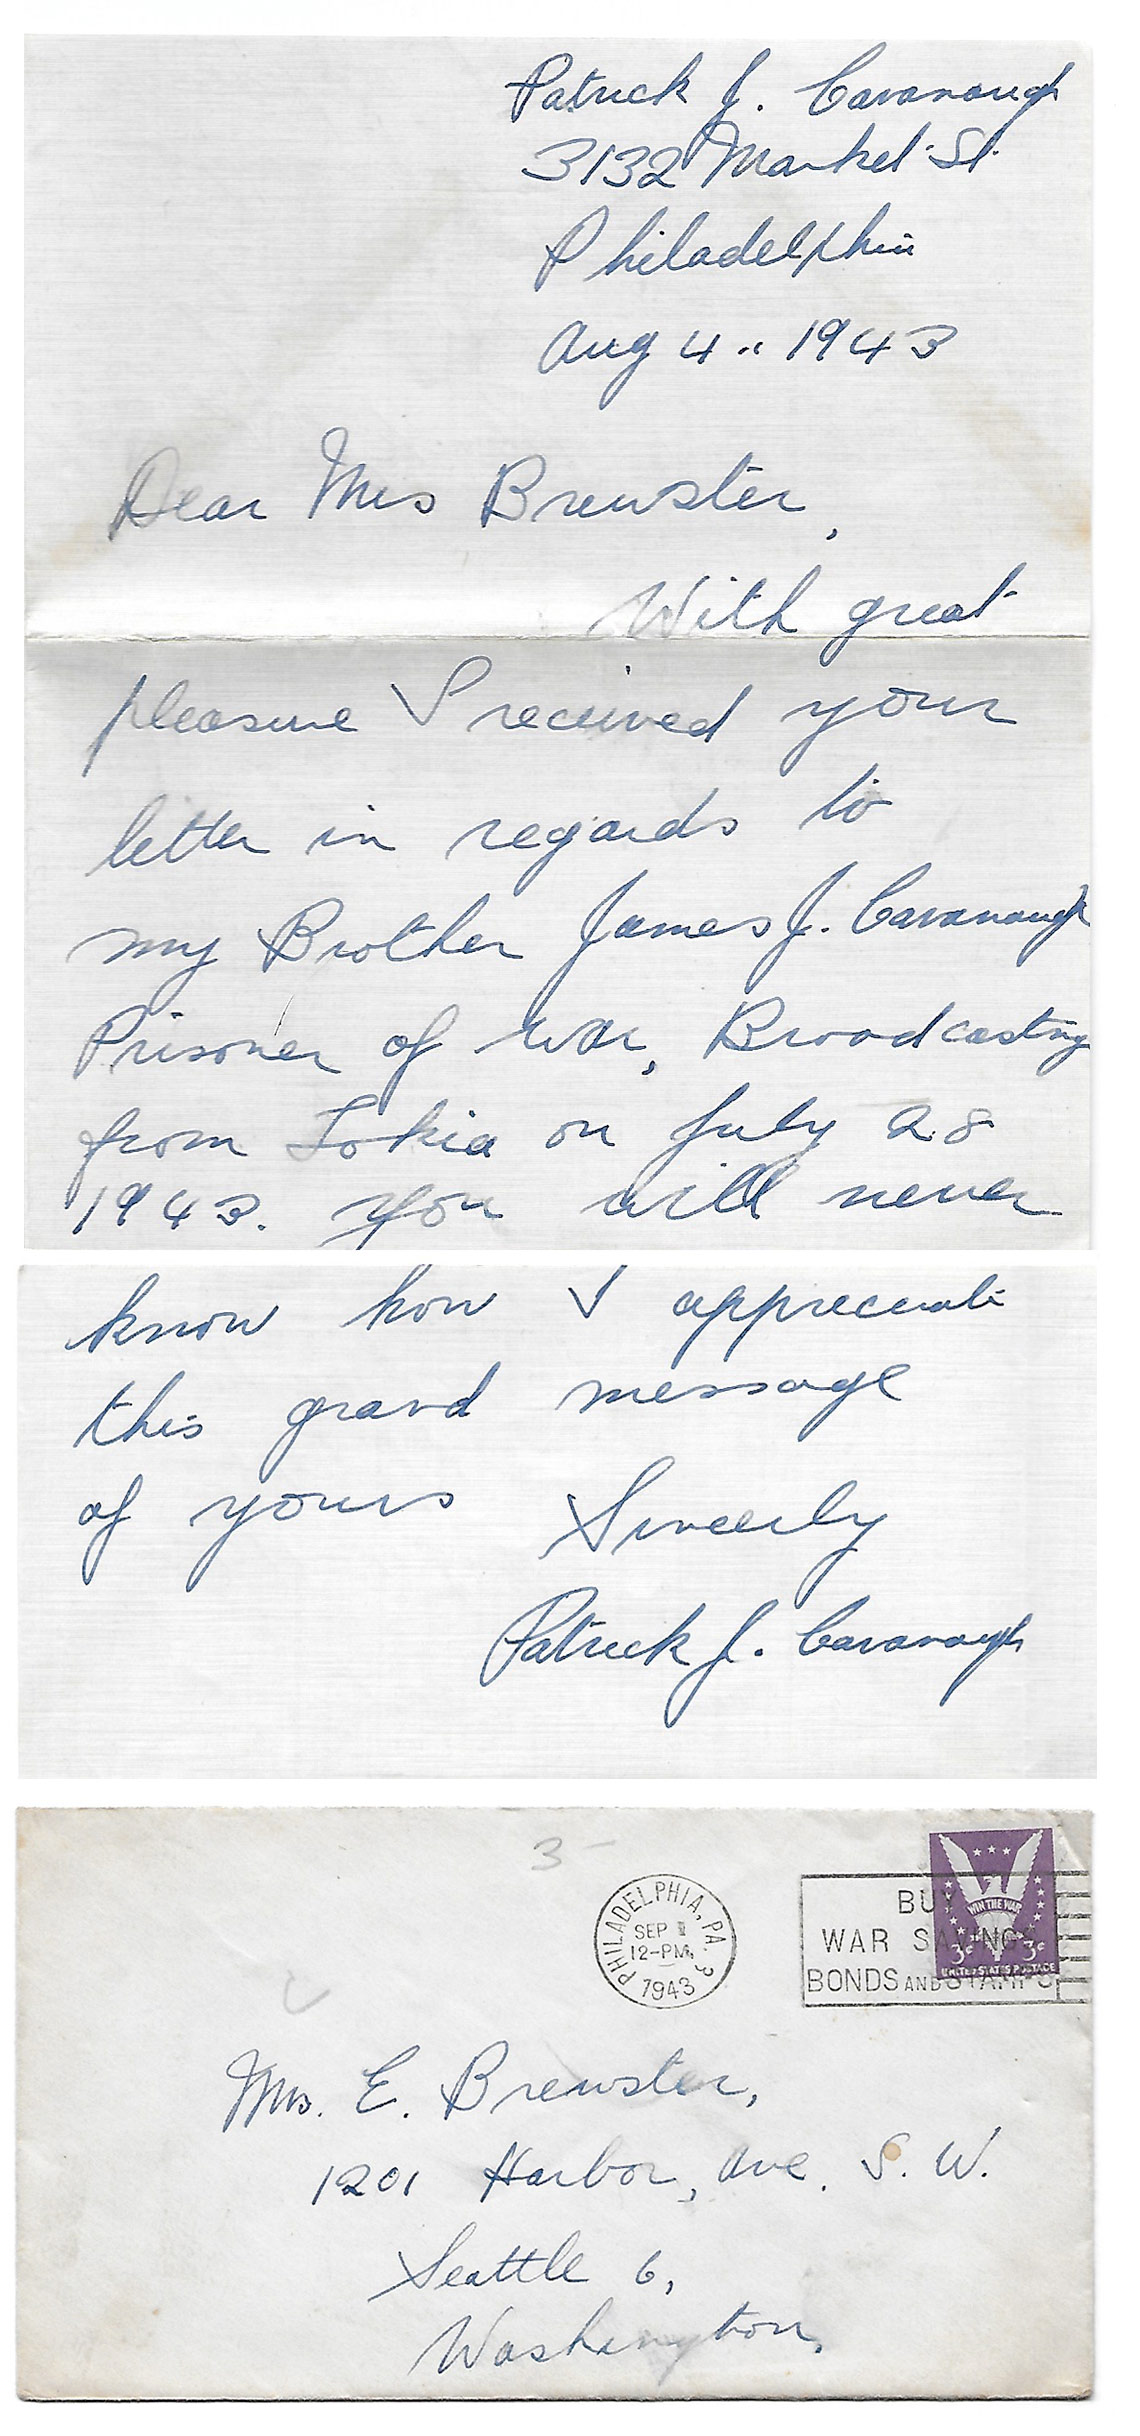 Patrick J. Cavanaugh
3132 Market St.
Philadelphia
Aug 4.. 1943
Dear Mrs Brewster,
With great
pleasure I received your
letter in regards to
my Brother James J. Cavanaugh
Prisoner of War, Broadcasting
from Tokia on July 28
1943. You will never
know how I appreciate
this grand message
of yours Sincerly
Patrick J. Cavanaugh
3-
PHILADELPHIA, PA. 3
SEP 1
12-PM
1943
BUY
WAR SAVINGS
BONDS AND STAMPS
WIN THE WAR
3¢ 3¢
UNITED STATES POSTAGE
Mrs. E. Brewster,
1201 Harbor, Ave. S. W.
Seattle 6,
Washington,